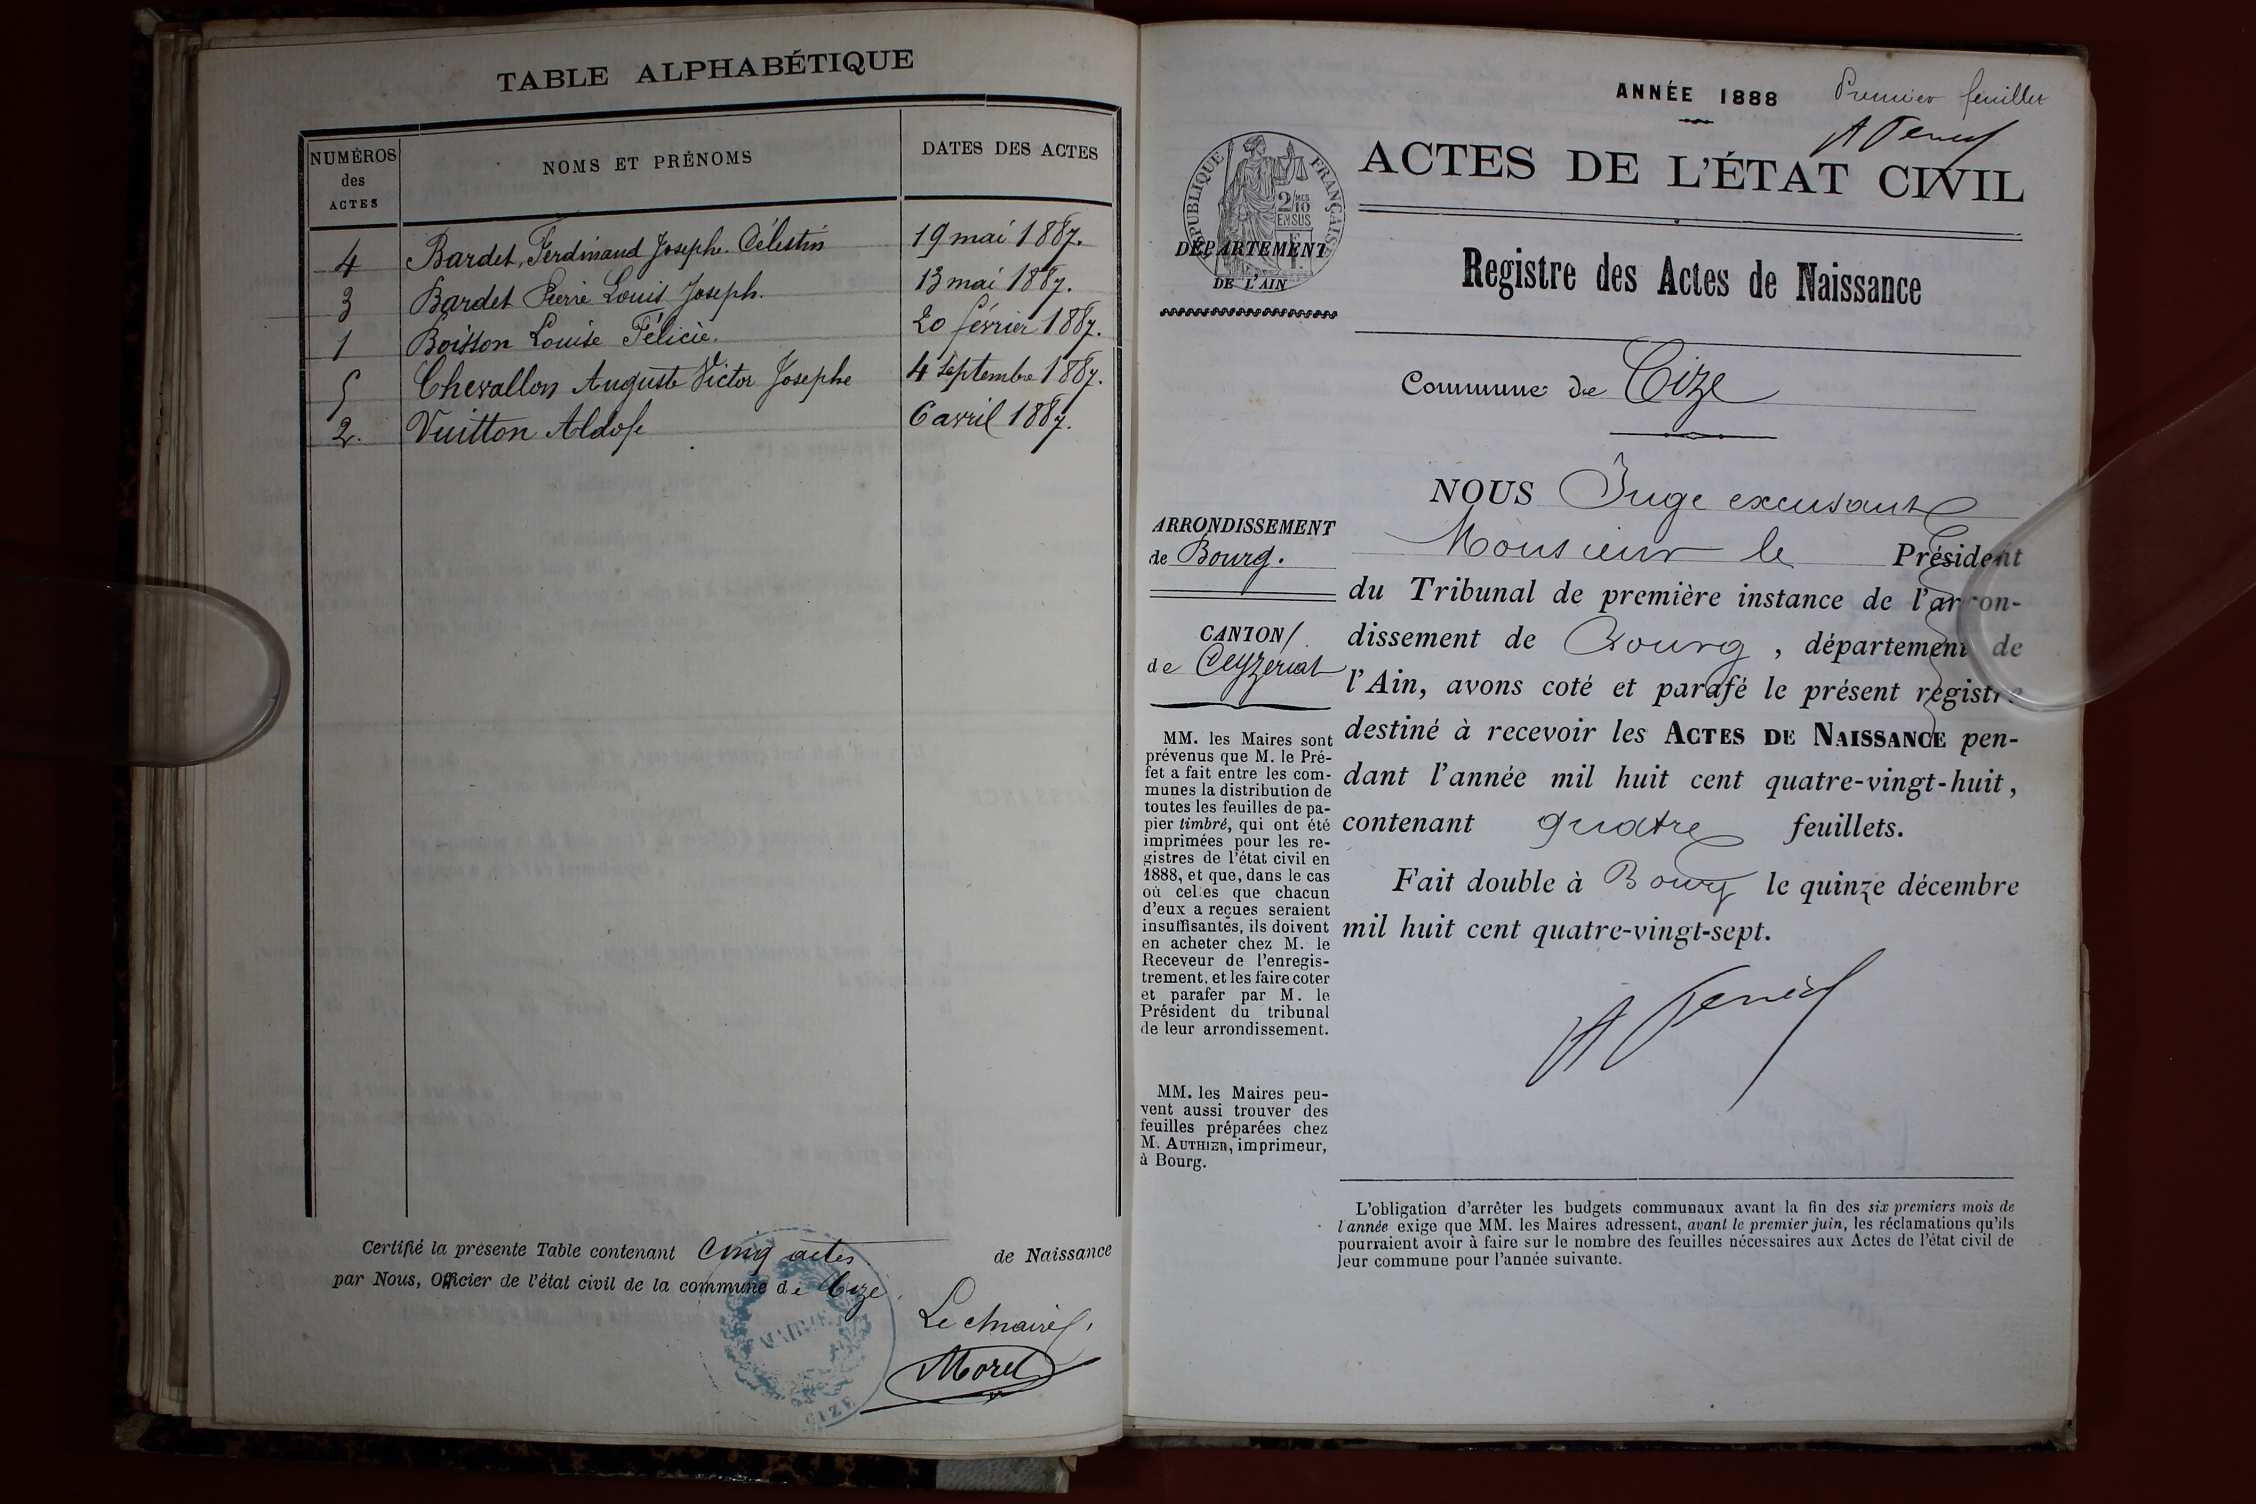 TABLE ALPHABÉTIQUE
NUMÉROS des ACTES
NOMS ET PRÉNOMS
DATES DES ACTES
4 Bardet, Ferdinand Joseph. Célestin 19 mai 1887.
3 Bardet Pierre Louis Joseph. 13 mai 1887.
1 Boisson Louise Félicie. 20 février 1887.
5 Chevallon Auguste Victor Josephe 4 septembre 1887.
2. Vuitton Aldofe 6 avril 1887.
Certifié la présente Table contenant Cinq actes de Naissance
par Nous, Officier de l'état civil de la commune de Cize.
MAIRIE
CIZE
Le Maire,
Morel
ANNÉE 1888 Premier feuillet
ACTES DE L'ÉTAT CIVIL
RÉPUBLIQUE FRANÇAISE
2/10 MES
EN SUS
DÉPARTEMENT
DE L'AIN
Registre des Actes de Naissance
Commune de Cize
ARRONDISSEMENT
de Bourg.
CANTON
de Ceyzeriat
MM. les Maires sont
prévenus que M. le Pré-
fet a fait entre les com-
munes la distribution de
toutes les feuilles de pa-
pier timbré, qui ont été
imprimées pour les re-
gistres de l'état civil en
1888, et que, dans le cas
où celles que chacun
d'eux a reçues seraient
insuffisantes, ils doivent
en acheter chez M. le
Receveur de l'enregis-
trement, et les faire coter
et parafer par M. le
Président du tribunal
de leur arrondissement.
MM. les Maires peu-
vent aussi trouver des
feuilles préparées chez
M. AUTHIER, imprimeur,
à Bourg.
NOUS Juge excusant
Monsieur le Président
du Tribunal de première instance de l'arron-
dissement de Bourg, département de
l'Ain, avons coté et parafé le présent registre
destiné à recevoir les ACTES DE NAISSANCE pen-
dant l'année mil huit cent quatre-vingt-huit,
contenant quatre feuillets.
Fait double à Bourg le quinze décembre
mil huit cent quatre-vingt-sept.
L'obligation d'arrêter les budgets communaux avant la fin des six premiers mois de
l'année exige que MM. les Maires adressent, avant le premier juin, les réclamations qu'ils
pourraient avoir à faire sur le nombre des feuilles nécessaires aux Actes de l'état civil de
leur commune pour l'année suivante.